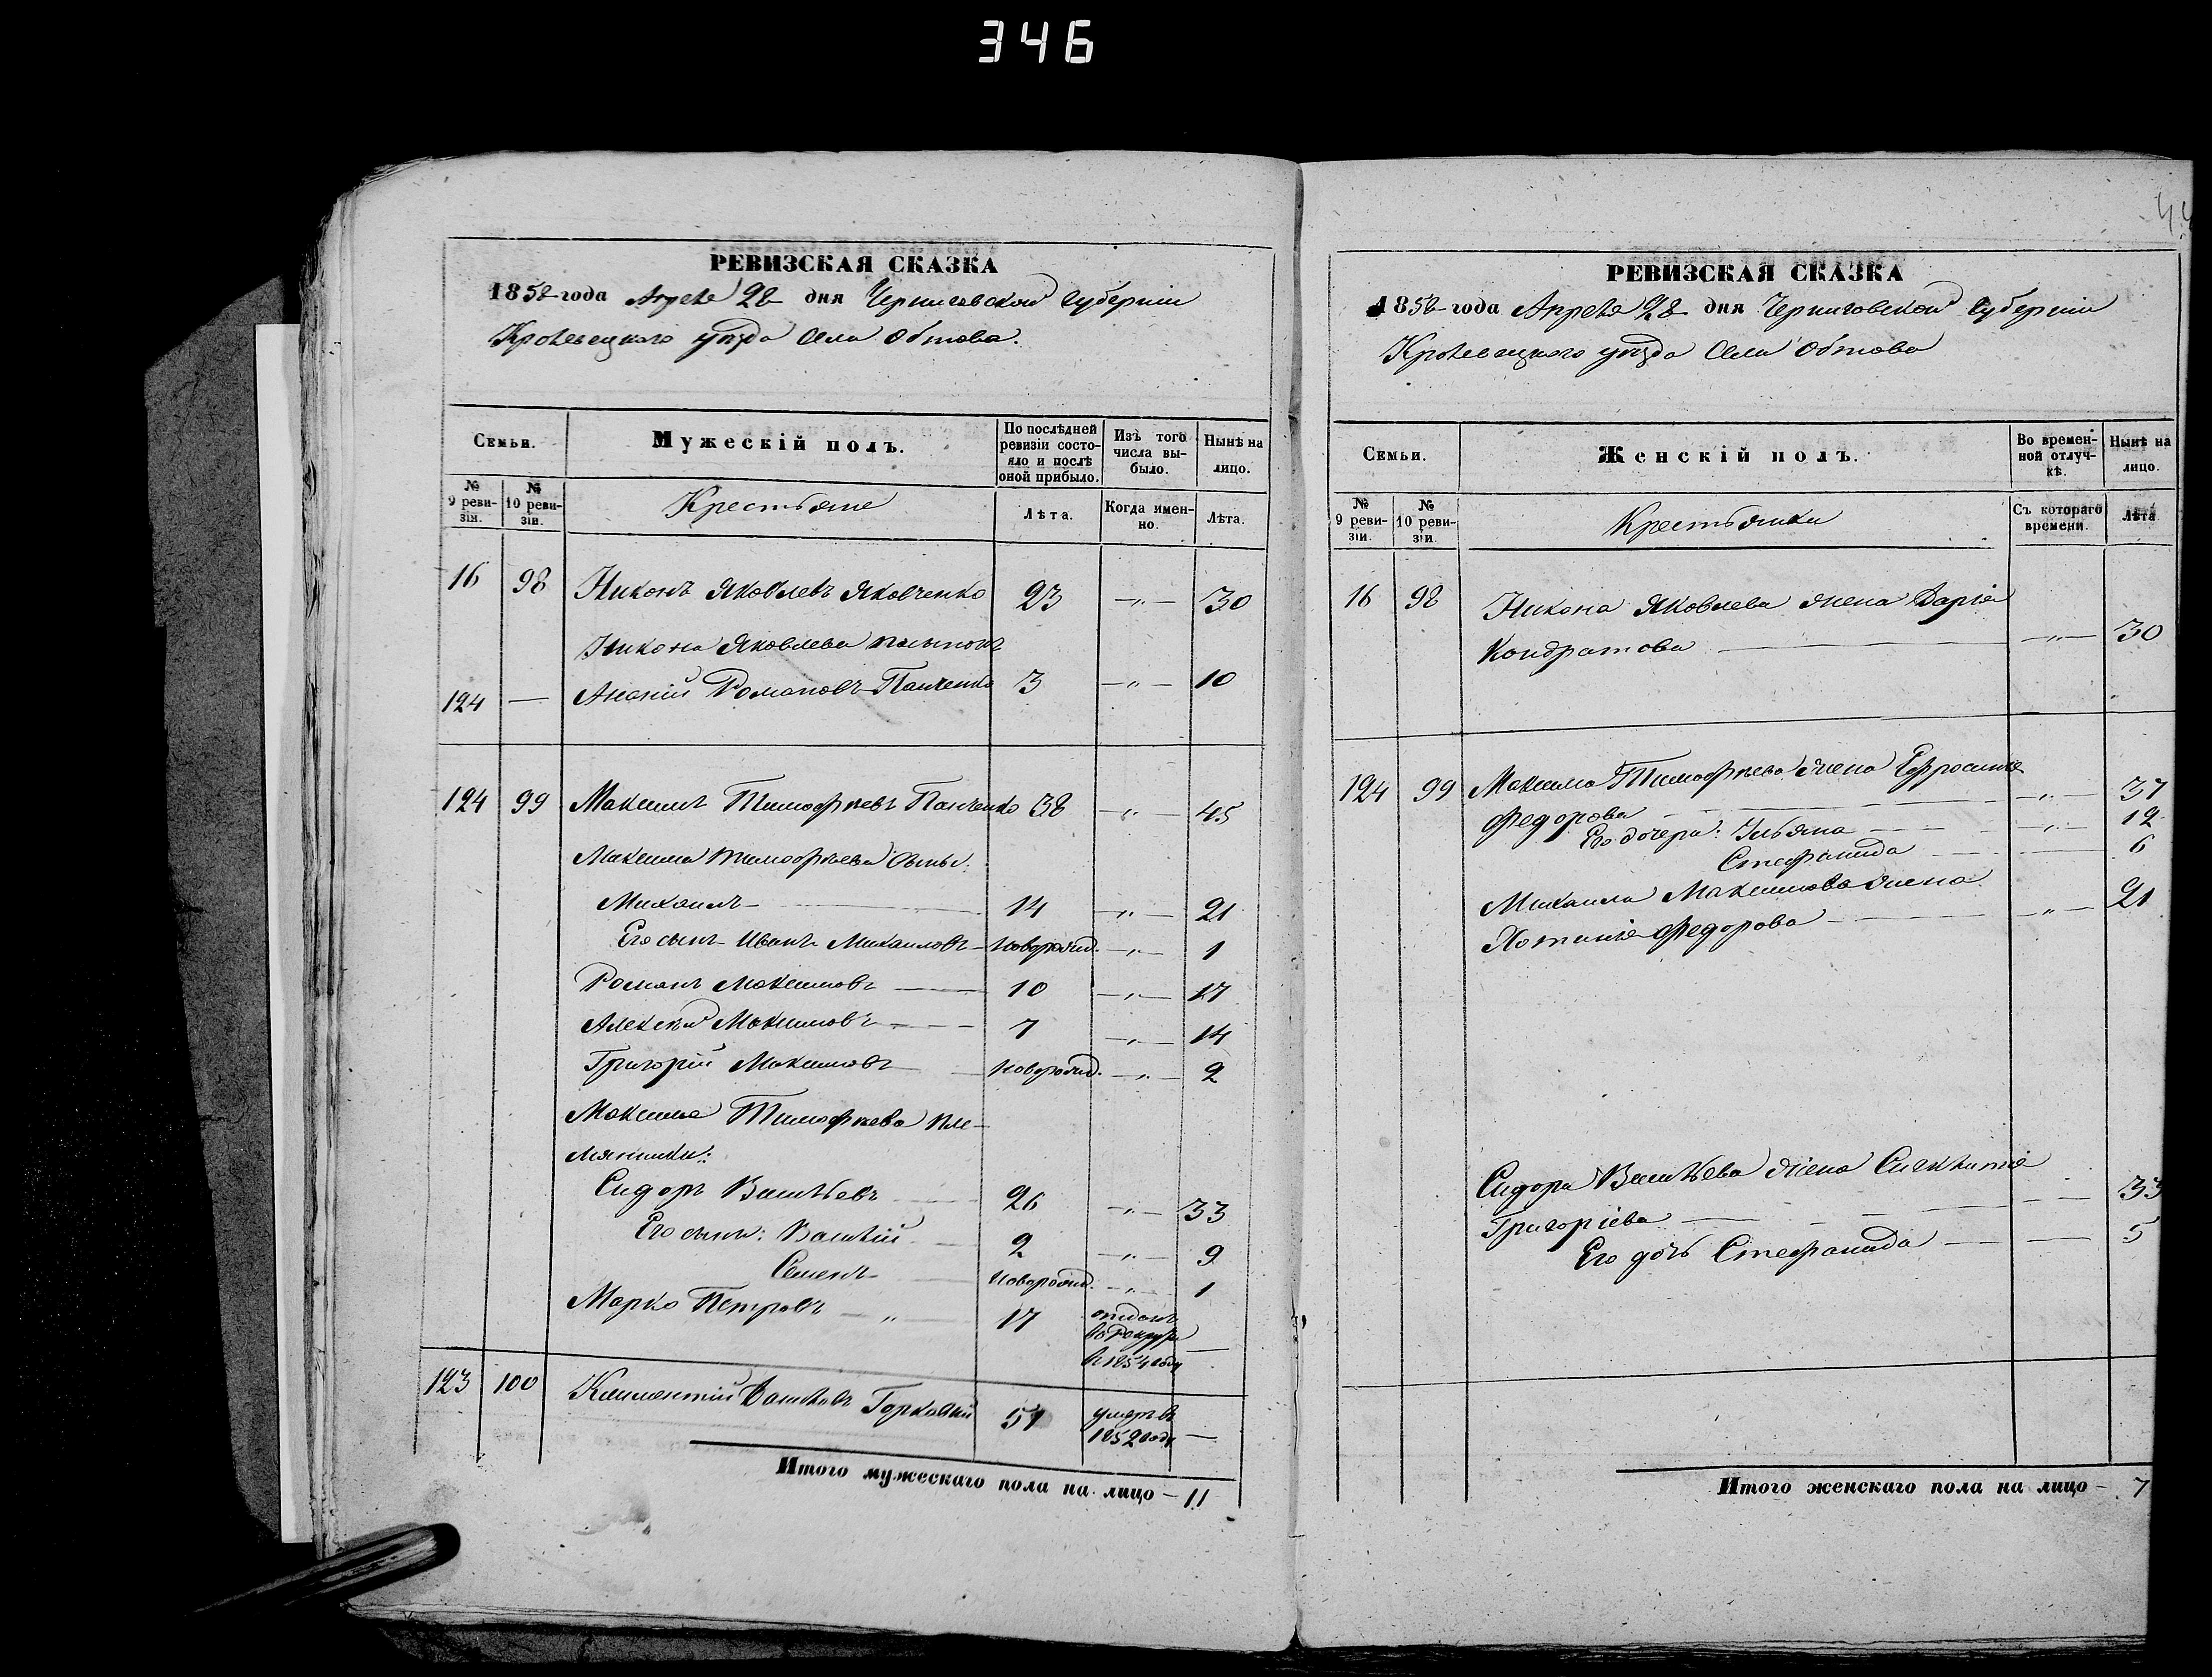 346
РЕВИЗСКАЯ СКАЗКА
1858 года Апреля 28 дня Черниговской Губерніи
Кролевецкаго уѣзда Села Обтова.
Семьи.
Мужескій полъ.
По послѣдней ревизіи состояло и послѣ оной прибыло.
Изъ того числа выбыло.
Нынѣ на лицо.
№ 9 ревизіи.
№ 10 ревизіи.
Крестьяне
Лѣта.
Когда именно.
Лѣта.
16 98 Никонъ Яковлевъ Яковченко 23 —„— 30
Никона Яковлева
124 — Романовъ Панченко 3 —„— 10
124 99 Максимъ Тимофѣевъ Панченко 38 —„— 45
Максима Тимофѣева Сыны:
Михаилъ — 14 —„— 21
Его сынъ Иванъ Михайловъ — новорожд. —„— 1
Романъ Максимовъ — 10 —„— 17
Алексѣй Максимовъ — 7 —„— 14
Григорій Максимовъ — новорожд. —„— 2
Максима Тимофѣева пле-
мянники:
Сидоръ Васильевъ 26 —„— 33
Его сыны: Василій 2 —„— 9
Семенъ новорожд. —„— 1
Марко Петровъ — „ — 17 отданъ
въ Рекруты
въ 1854 году —
123 100 Климентій Горковый 51 умеръ въ
1852 году —
Итого мужескаго пола на лицо — 11
РЕВИЗСКАЯ СКАЗКА
1858 года Апреля 28 дня Черниговской Губерніи
Кролевецкаго уѣзда Села Обтова
Семьи.
Женскій полъ.
Во временной отлучкѣ.
Нынѣ на лицо.
№ 9 ревизіи.
№ 10 ревизіи.
Крестьянки
Съ котораго времени.
Лѣта
16 98 Никона Яковлева жена Дарія
Кондратова — —„— 30
124 99 Максима Тимофѣева жена Ефросинія
Федорова — —„— 37
Его дочери: Ульяна — —„— 12
Стефанида — 6
Михаила Максимова жена
Хотинія Федорова — —„— 21
Сидора Васильева жена Синклитія
Григоріева — 33
Его дочь Стефанида — 5
Итого женскаго пола на лицо — 7